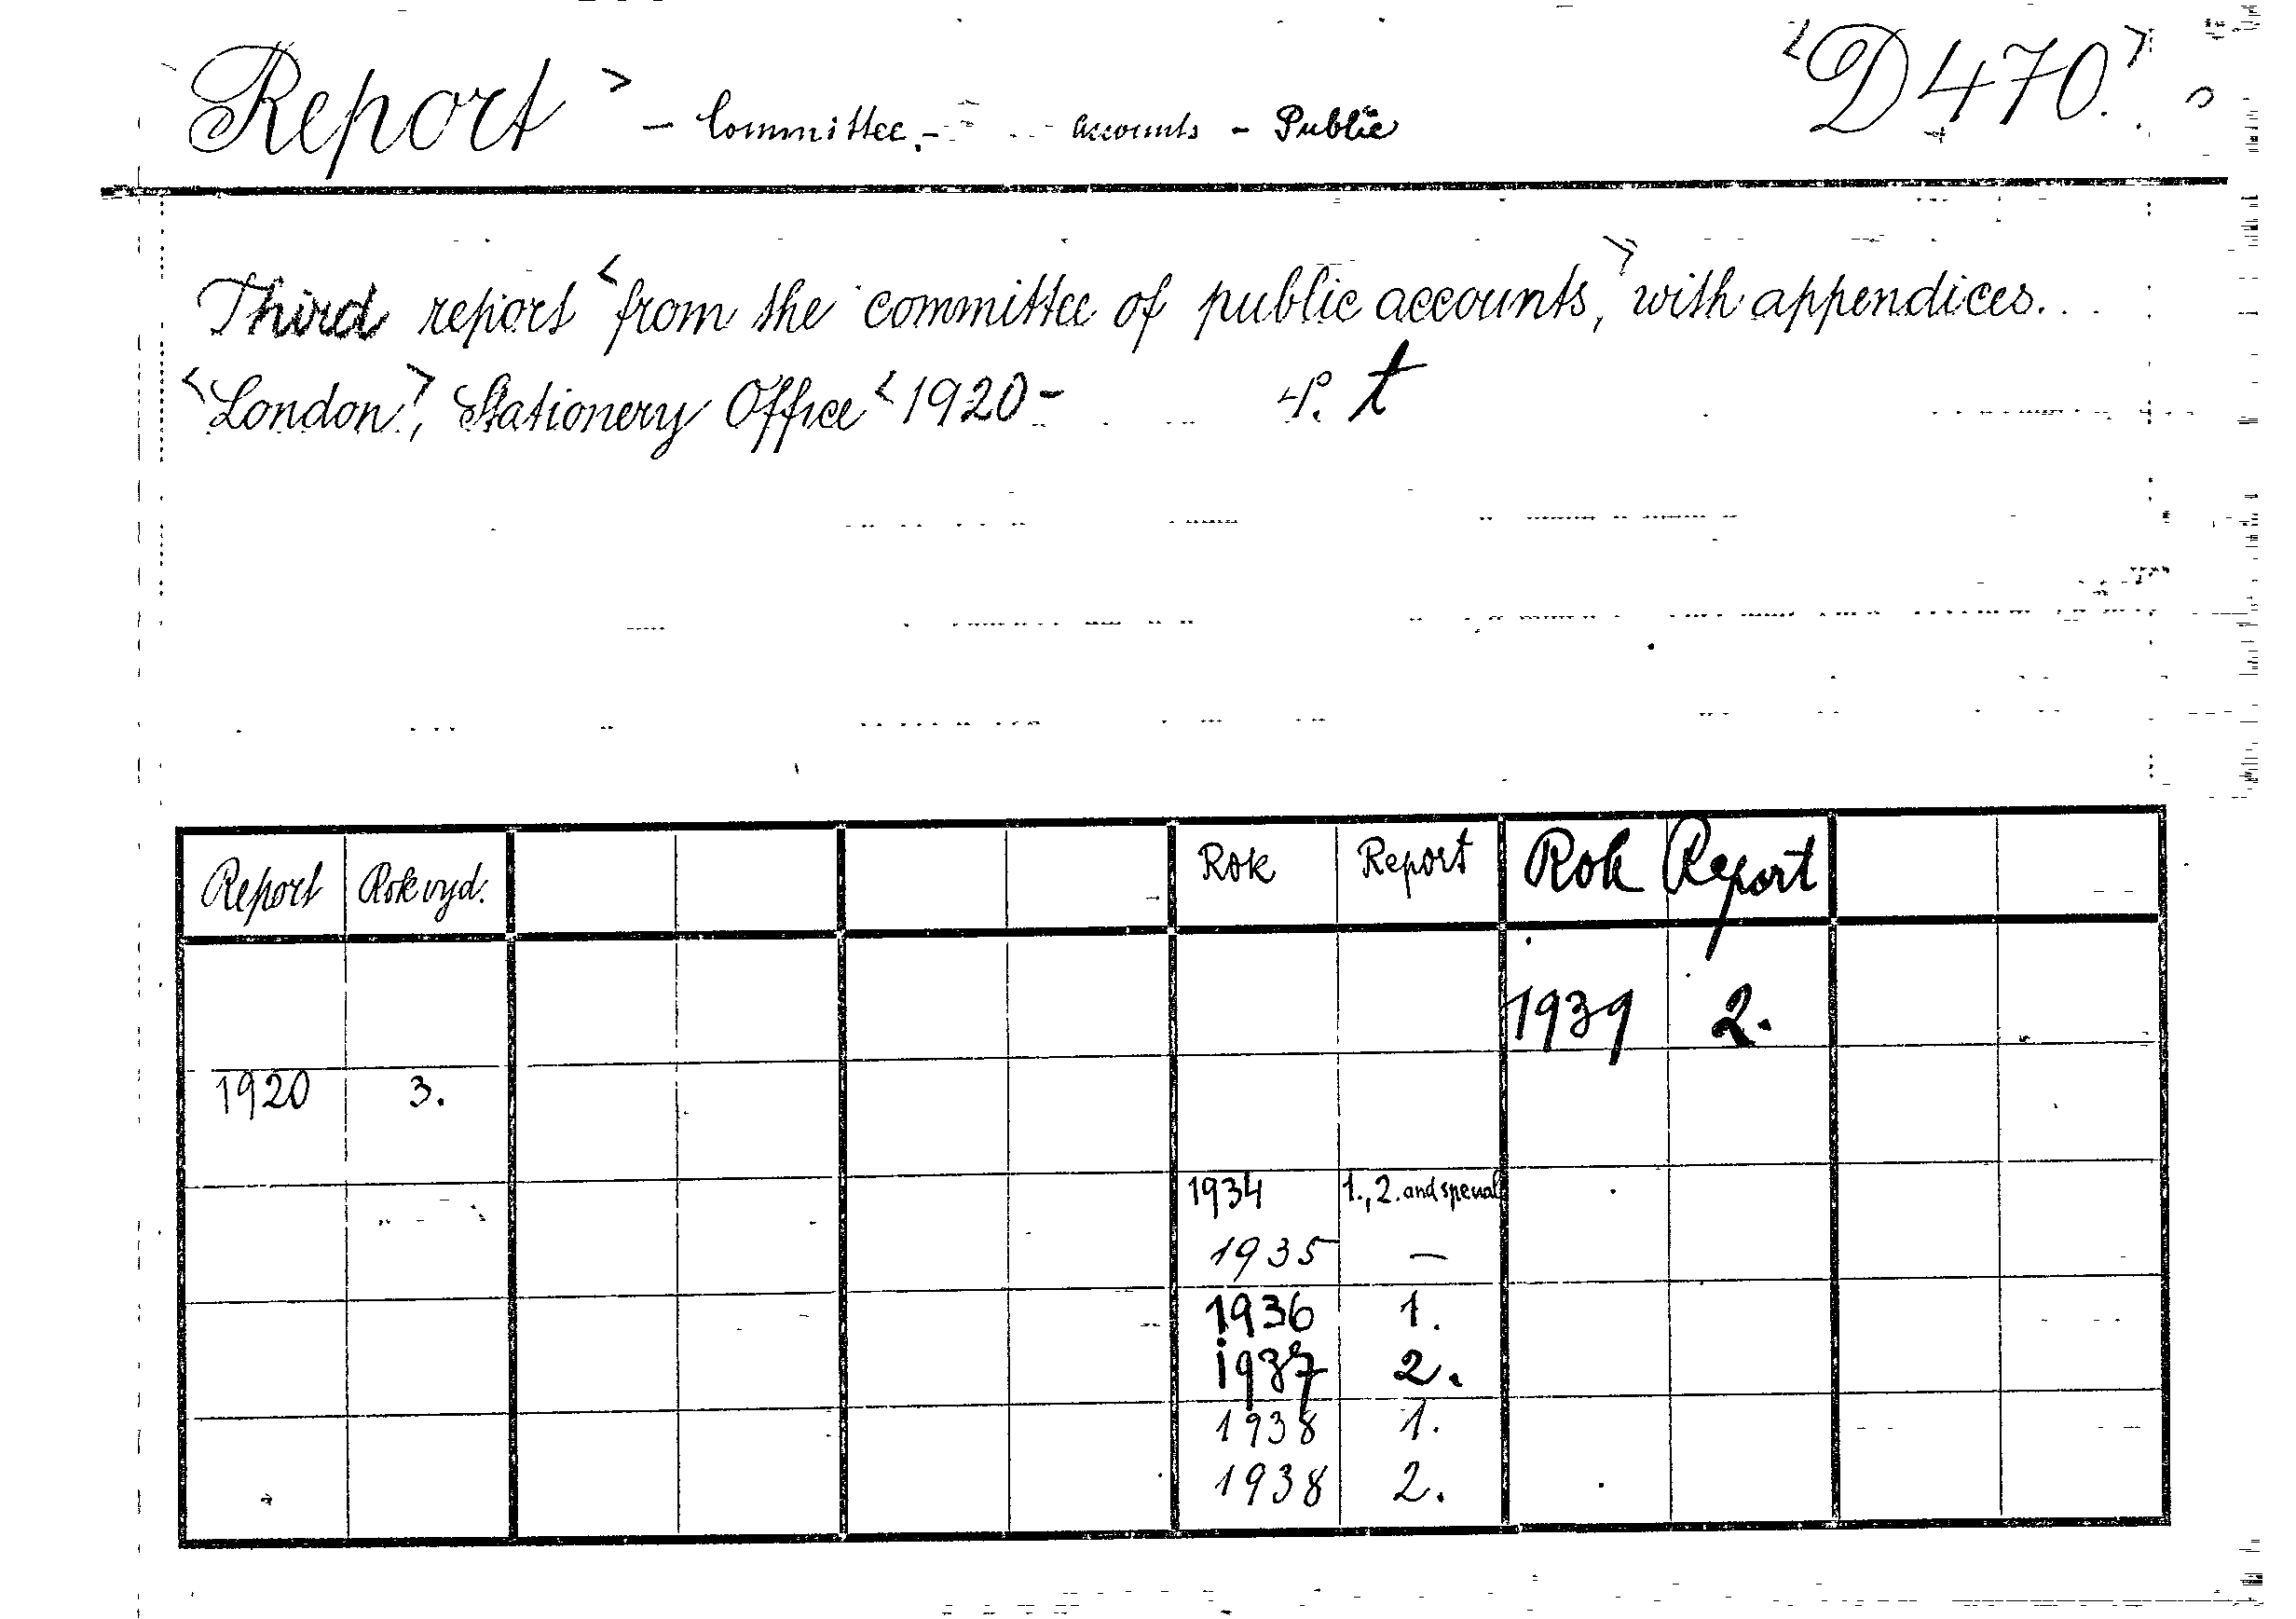 Report > - Committee. - accounts - Public <D470.>
Third report <from the committee of public accounts,> with appendices...
<London>, Stationery Office <1920- 4°. t
Report Rok vyd. Rok Report Rok Report
1939 2.
1920 3.
1934 1., 2. and special
1935 —
1936 1.
1937 2.
1938 1.
1938 2.